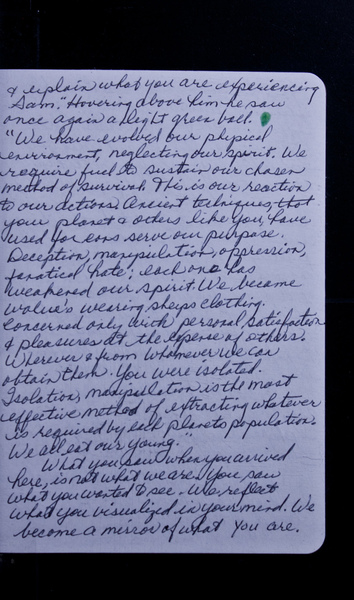 & explain what you are experiencing
Sam." Hovering above him he saw
once again a light green ball.
"We have evolved our phsical
enviroment, neglecting our spirit. We
require fuel to sustain our chosen
method of survival. This is our reaction
to our actions. Ancient techniques, that
your planet & others like you, have
used for eons serve our purpose.
Deception, manipulation, oppression,
fanatical hate; each one has
weakened our spirit. We became
wolve's wearing sheeps clothing.
Concerned only with personal satisfaction
& pleasures at the expense of others.
Wherever & from whomever we can
obtain them. You were isolated.
Isolation, manipulation is the most
effective method of extracting whatever
is required by each planets population.
We all eat our young."
What you saw when you arrived
here, is not what we are. You saw
what you wanted to see. We reflect
what you visualized in your mind. We
become a mirror of what you are.